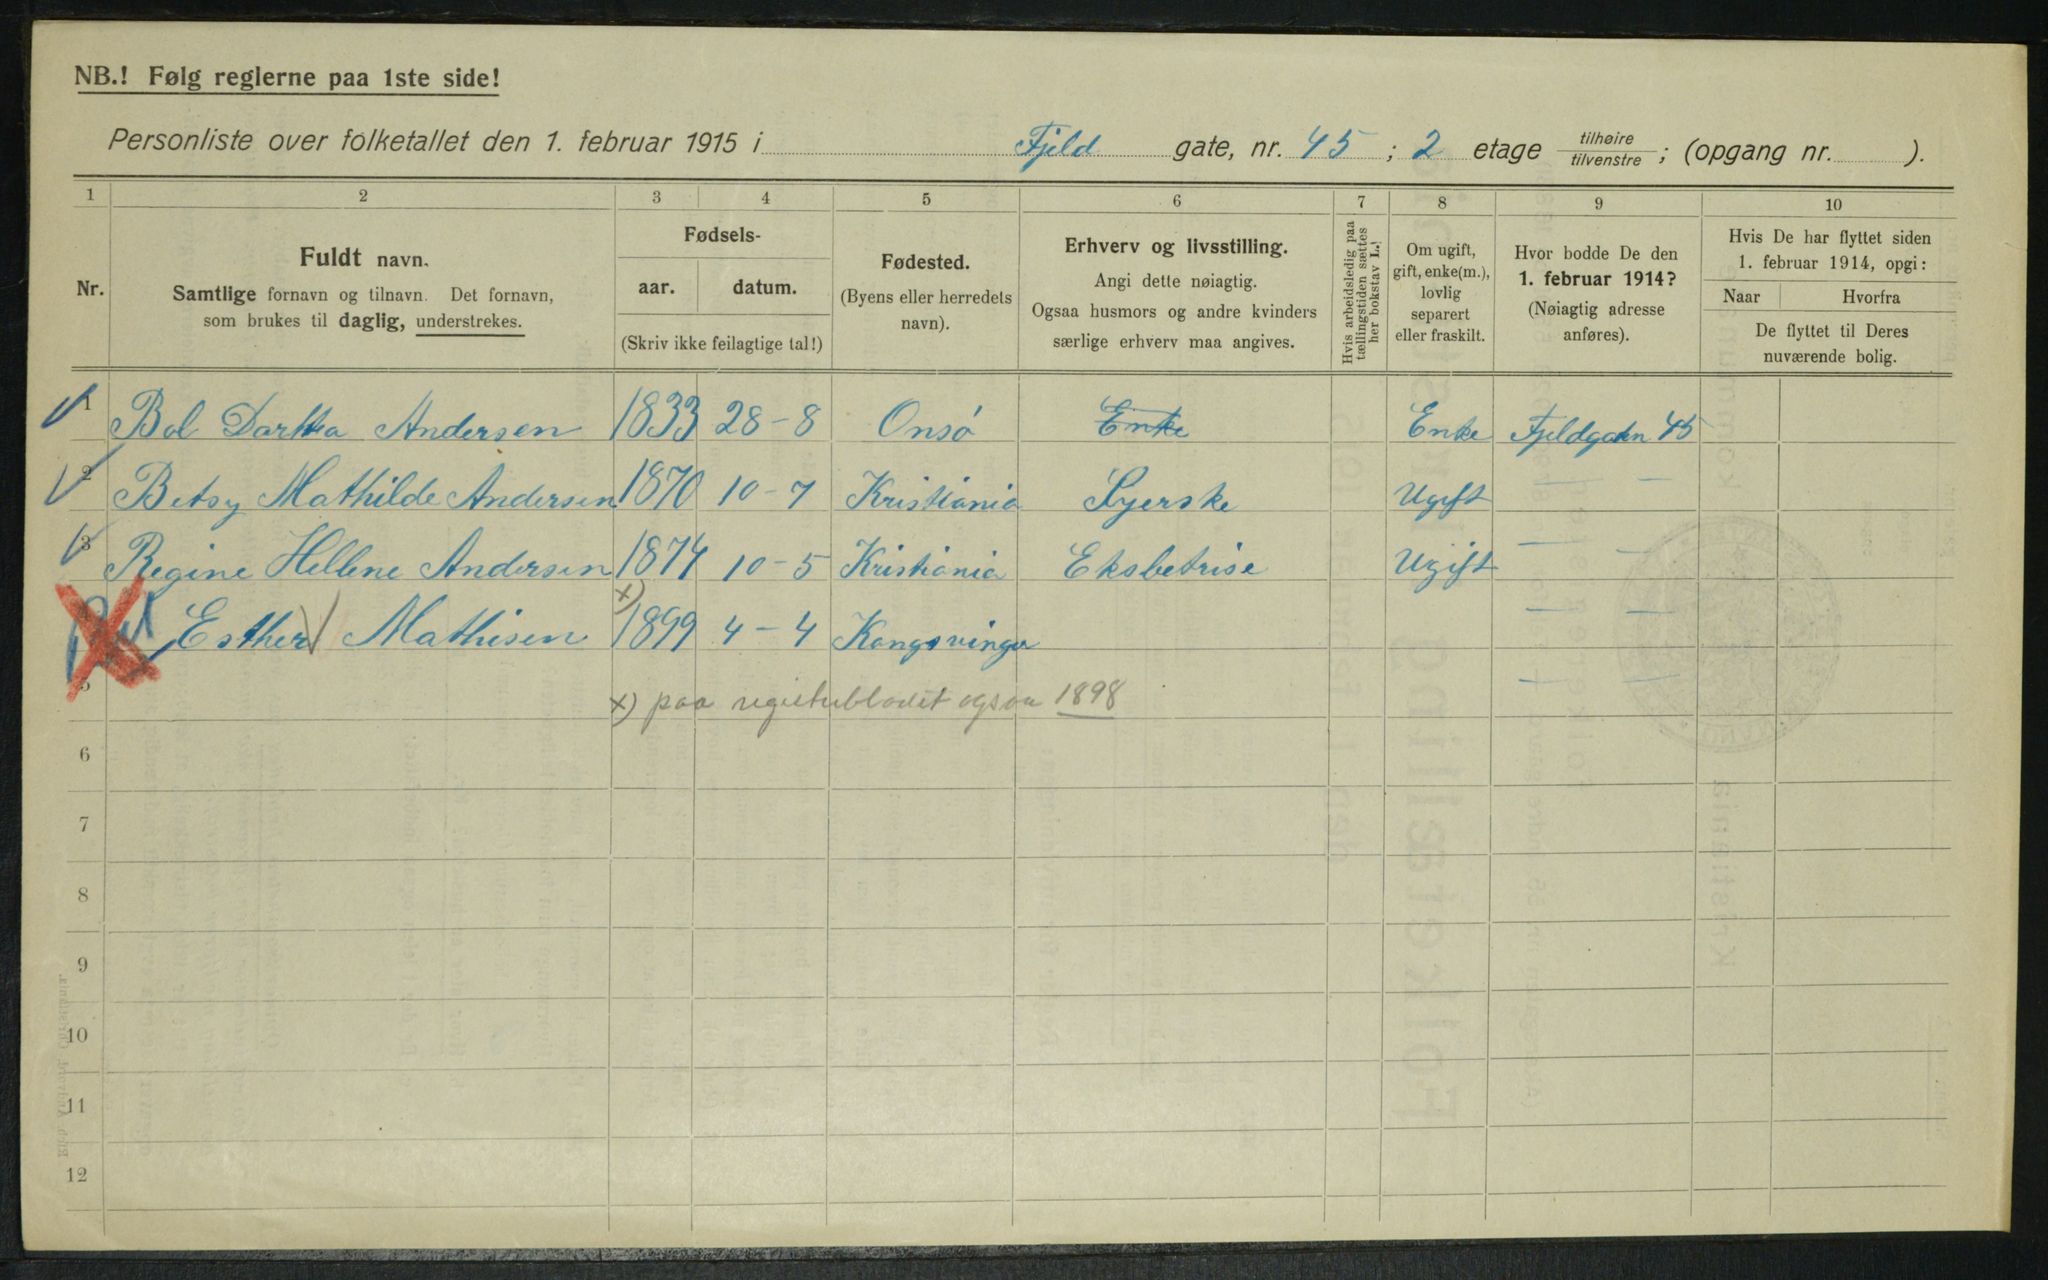 NB.! Følg reglerne paa 1ste side!
Personliste over folketallet den 1. februar 1915 i Fjeld gate, nr. 45 ; 2 etage tilhøire tilvenstre ; (opgang nr. ).
1 2 3 4 5 6 7 8 9 10
Nr.
Fuldt navn.
Samtlige fornavn og tilnavn. Det fornavn,
som brukes til daglig, understrekes.
Fødsels-
aar. datum.
(Skriv ikke feilagtige tal!)
Fødested.
(Byens eller herredets
navn).
Erhverv og livsstilling.
Angi dette nøiagtig.
Ogsaa husmors og andre kvinders
særlige erhverv maa angives.
Hvis arbeidsledig paa
tællingstiden sættes
her bokstav L.!
Om ugift,
gift, enke(m.),
lovlig
separert
eller fraskilt.
Hvor bodde De den
1. februar 1914?
(Nøiagtig adresse
anføres).
Hvis De har flyttet siden
1. februar 1914, opgi:
Naar Hvorfra
De flyttet til Deres
nuværende bolig.
1 Bol Darthea Andersen 1833 28-8 Onsø Enke Enke Fjeldgaten 45
2 Betsy Mathilde Andersen 1870 10-7 Kristiania Syerske Ugift — —
3 Regine Hellene Andersen 1874 10-5 Kristiania Eksbetrise Ugift — —
Esther Mathisen x) 1899 4-4 Kongsvinger — —
5 x) paa registerbladet ogsaa 1898
6
7
8
9
10
11
12